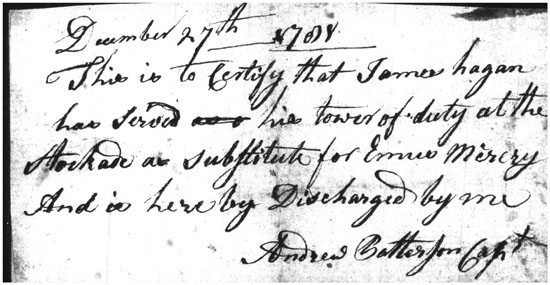 December 27th 1781
This is to Certify that James hagan
has Served his tower of duty at the
Stockade as substitute for Ennis Mercry
And is here by Discharged by me
Andrew Batterson Capt